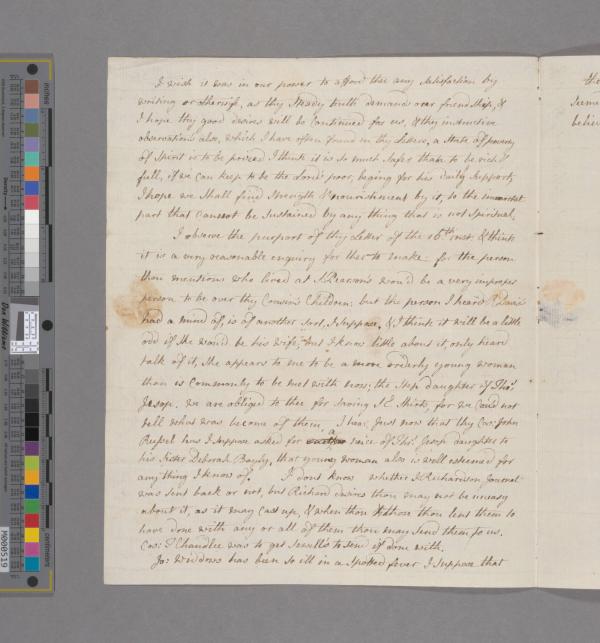 I wish it was in our power to afford thee any satisfaction by
writing or otherwise, as thy steady truth demands our friendship, &
I hope thy good desires will be continued for us, & thy instructive
observations also, which I have often found in thy letters, a state of poverty
of Spirit is to be prized I think it is so much safer than to be rich &
full, if we can keep to be the Lords poor, beging for his daily support,
I hope we shall find strength & nourishment by it, to the immortal
part that cannot be sustained by any thing that is not Spiritual,
I observe the purport of thy Letter of the 16th inst: & think
it is a very reasonable enquiry for thee to make for the person
thou mentions who lived at J. Pearson's would be a very improper
person to be over thy Cousin's Children; but the person I heard Davis
had a mind of, is of another sort, I suppose, & I think it will be a little
odd if she would be his wife, but I know little about it, only heard
talk of it, she appears to me to be a more orderly young woman
than is commonly to be met with now; the step daughter of Thos.
Jesop. we are obliged to thee for shewing J E thirds, for we could not
tell what was become of them, I hear just now that thy Cos: John
has I suppose asked for a neice of Thos. Jesop daughter to
his Sister Deborah that young woman also is well esteemed for
any thing I know of. I dont know whether J. Richardson Journal
was sent back or not, but Richard desires thou may not be uneasy
about it, as it may cast up, & when thou & those thou lent them to
have done with any or all of them thou may send them to us.
Cos: S Chandlee was to get Sewell's to send if done with.
Jos: Widdows has been so ill in a Spotted fever I suppose that
the
believ